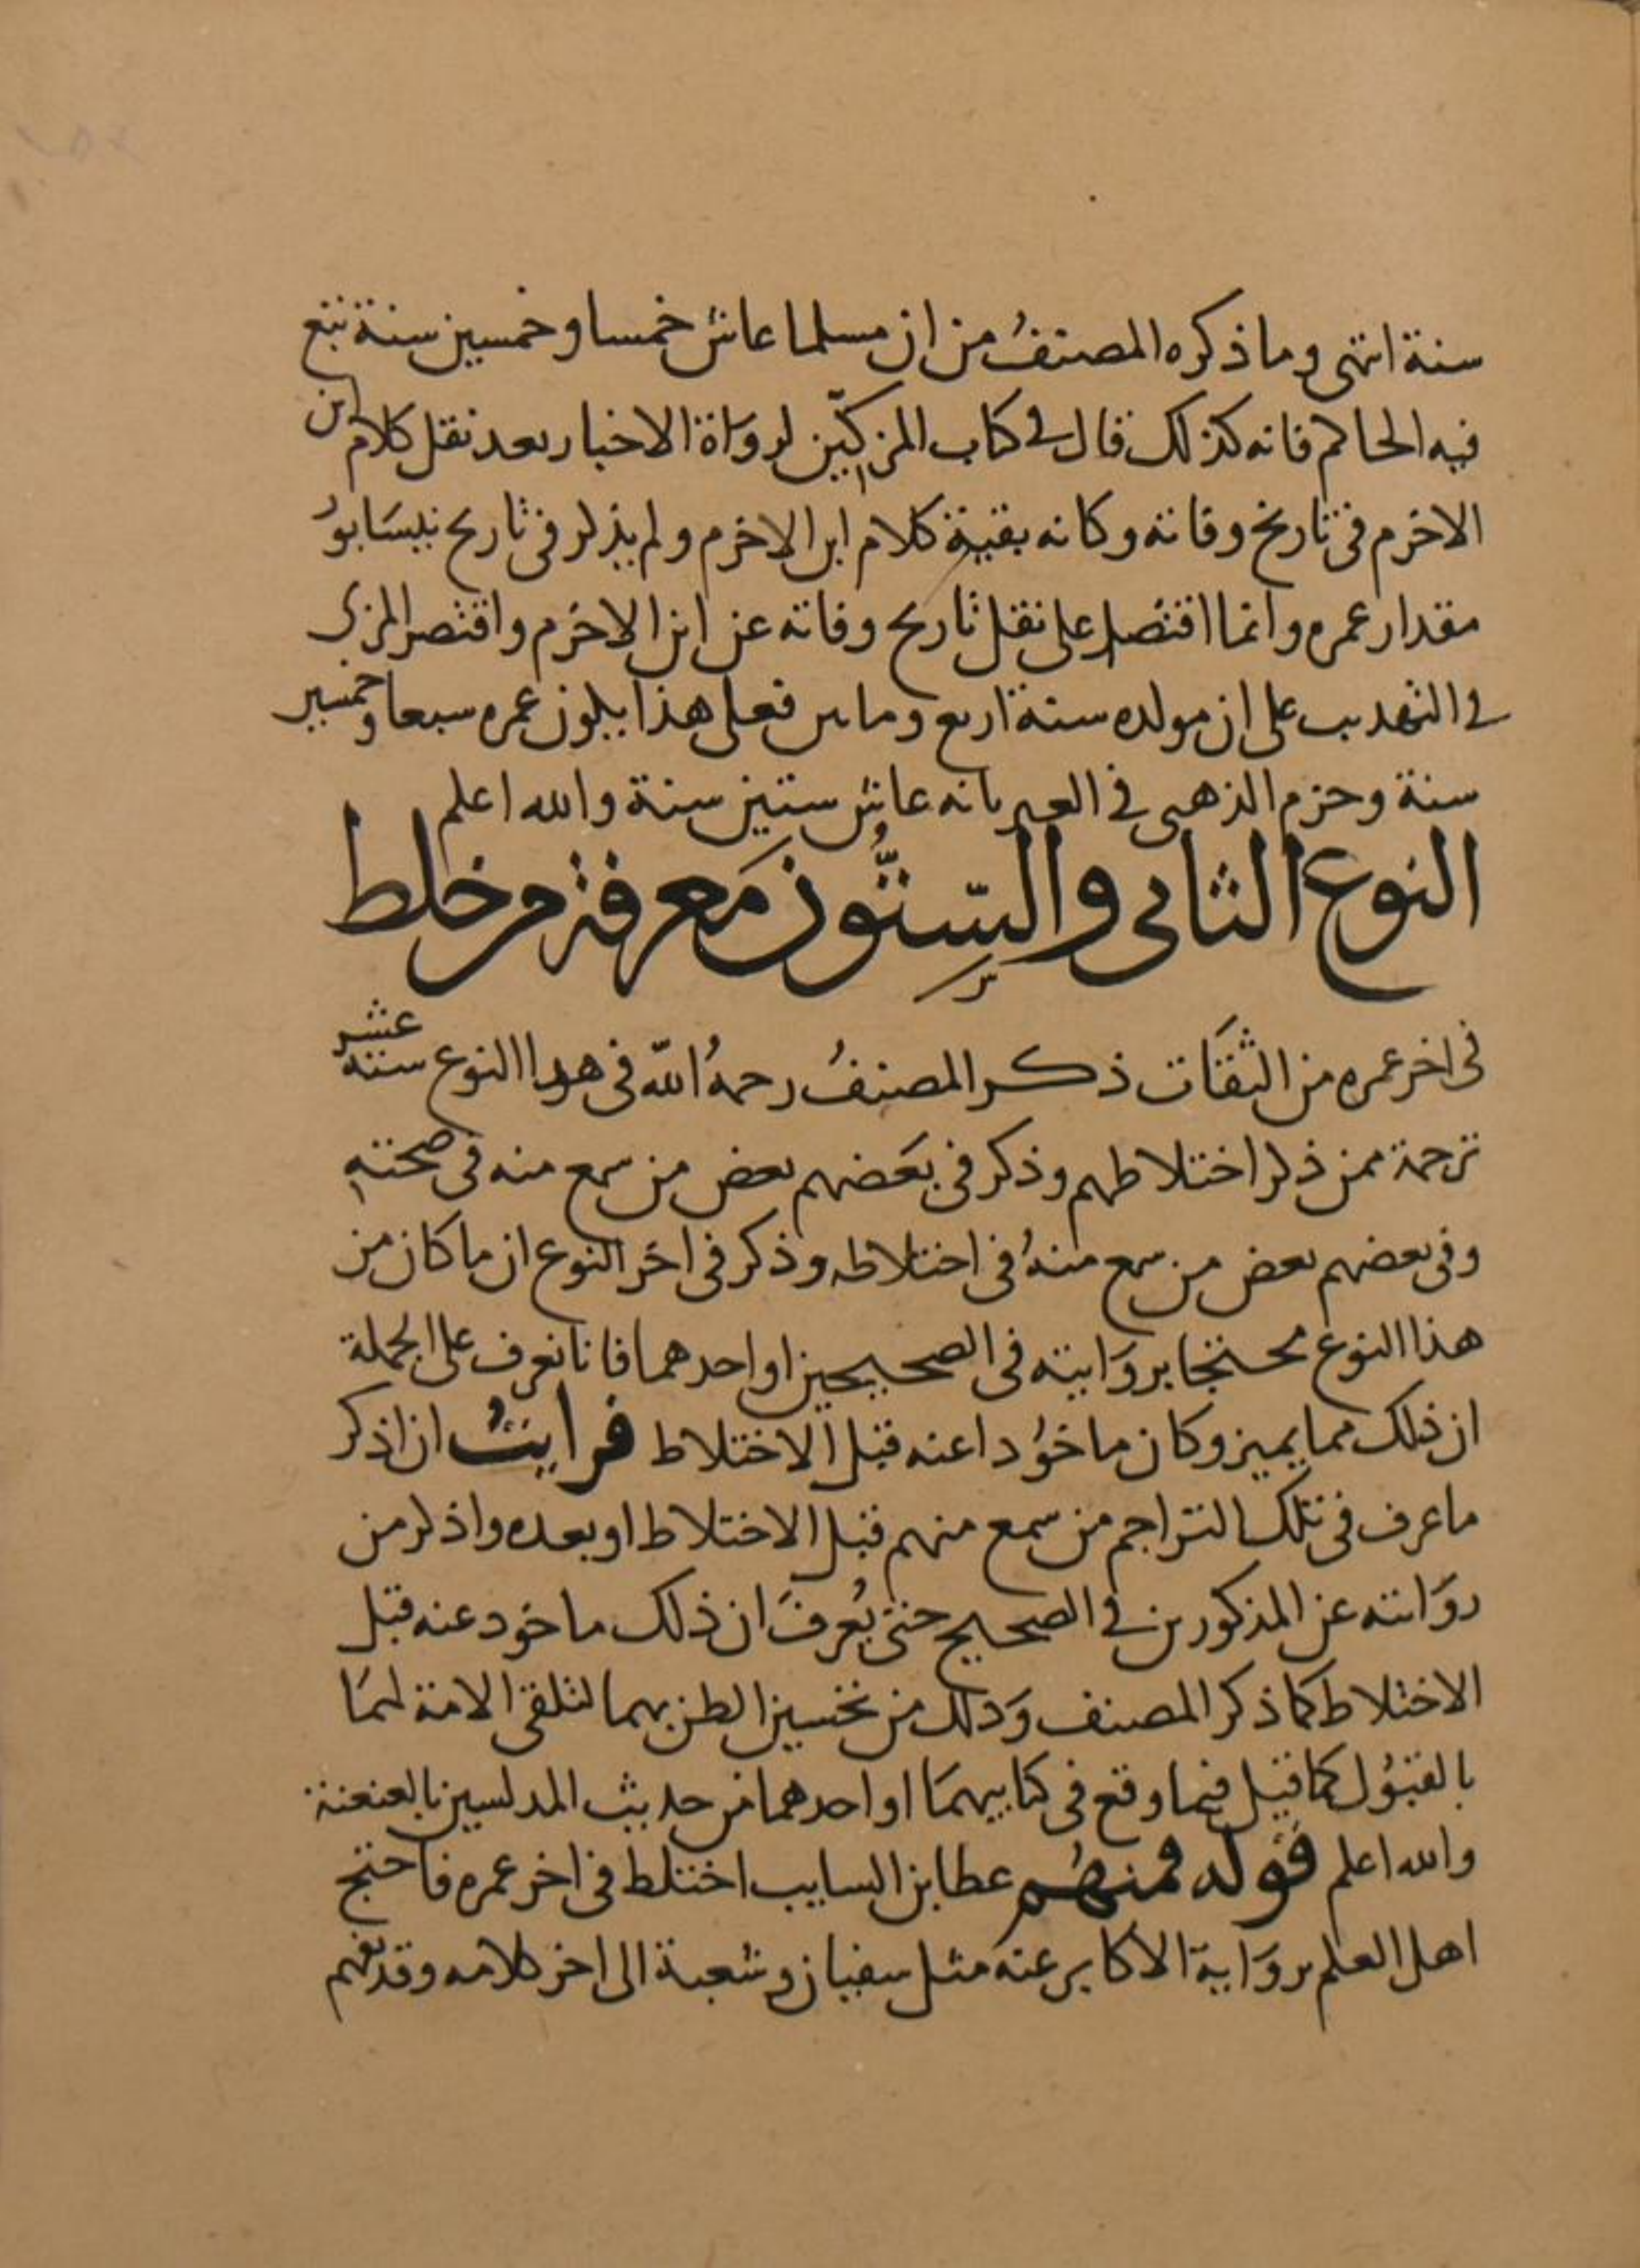 سنة انتهى وما ذكره المصنفُ من ان مسلما عاش خمسا وخمسين سنة تبع
فيه الحاكم فانه كذلك قال في كتاب المزكّين لرواة الاخبار بعد نقل كلام ابن
الاخرم في تاريخ وفاته وكانه بقية كلام ابن الاخرم ولم يذكر في تاريخ نيسَابور
مقدار عمره وانما اقتصر على نقل تاريخ وفاته عن ابن الاخرم واقتصر المزي
في التهذيب على ان مولده سنة اربع وماتين فعلى هذا يكون عمره سبعا وخمسين
سنة وجزم الذهبي في العبر بانه عاش ستين سنة والله اعلم
النوع الثاني والسِّتُّون مَعرفة من خلط
في اخر عمره من الثقَات ذكر المصنفُ رحمهُ اللّه في هذا النوع ستة عشر
ترجمة ممن ذكر اختلاطهم وذكر في بعَضهم بعض من سمع منه في صحته
وفي بعضهم بعض من سمع منهُ في اختلاطه وذكر في اخر النوع ان ما كان من
هذا النوع محتجا بروَايته في الصحيحين او احدهما فانا نعرف على الجملة
ان ذلك مما يميز وكان ماخوُدا عنه قبل الاختلاط فرايتُ ان اذكر
ما عرف في تلك التراجم من سمع منهم قبل الاختلاط او بعده واذكر من
روَايته عن المذكورين في الصحيح حتى يُعرفَ ان ذلك ماخود عنه قبل
الاختلاط كما ذكر المصنف وَذلك من تحسين الظن بهما لتلقي الامة لهمَا
بالقبُول كما قيل فيما وقع في كتابيهمَا او احدهما من حديث المدلسين بالعنعنة
والله اعلم قوله فمنهُم عطا بن السايب اختلط في اخر عمره فاحتج
اهل العلم بروَاية الاكابر عنه مثل سفيان وشعبة الى اخر كلامه وقد يفهم